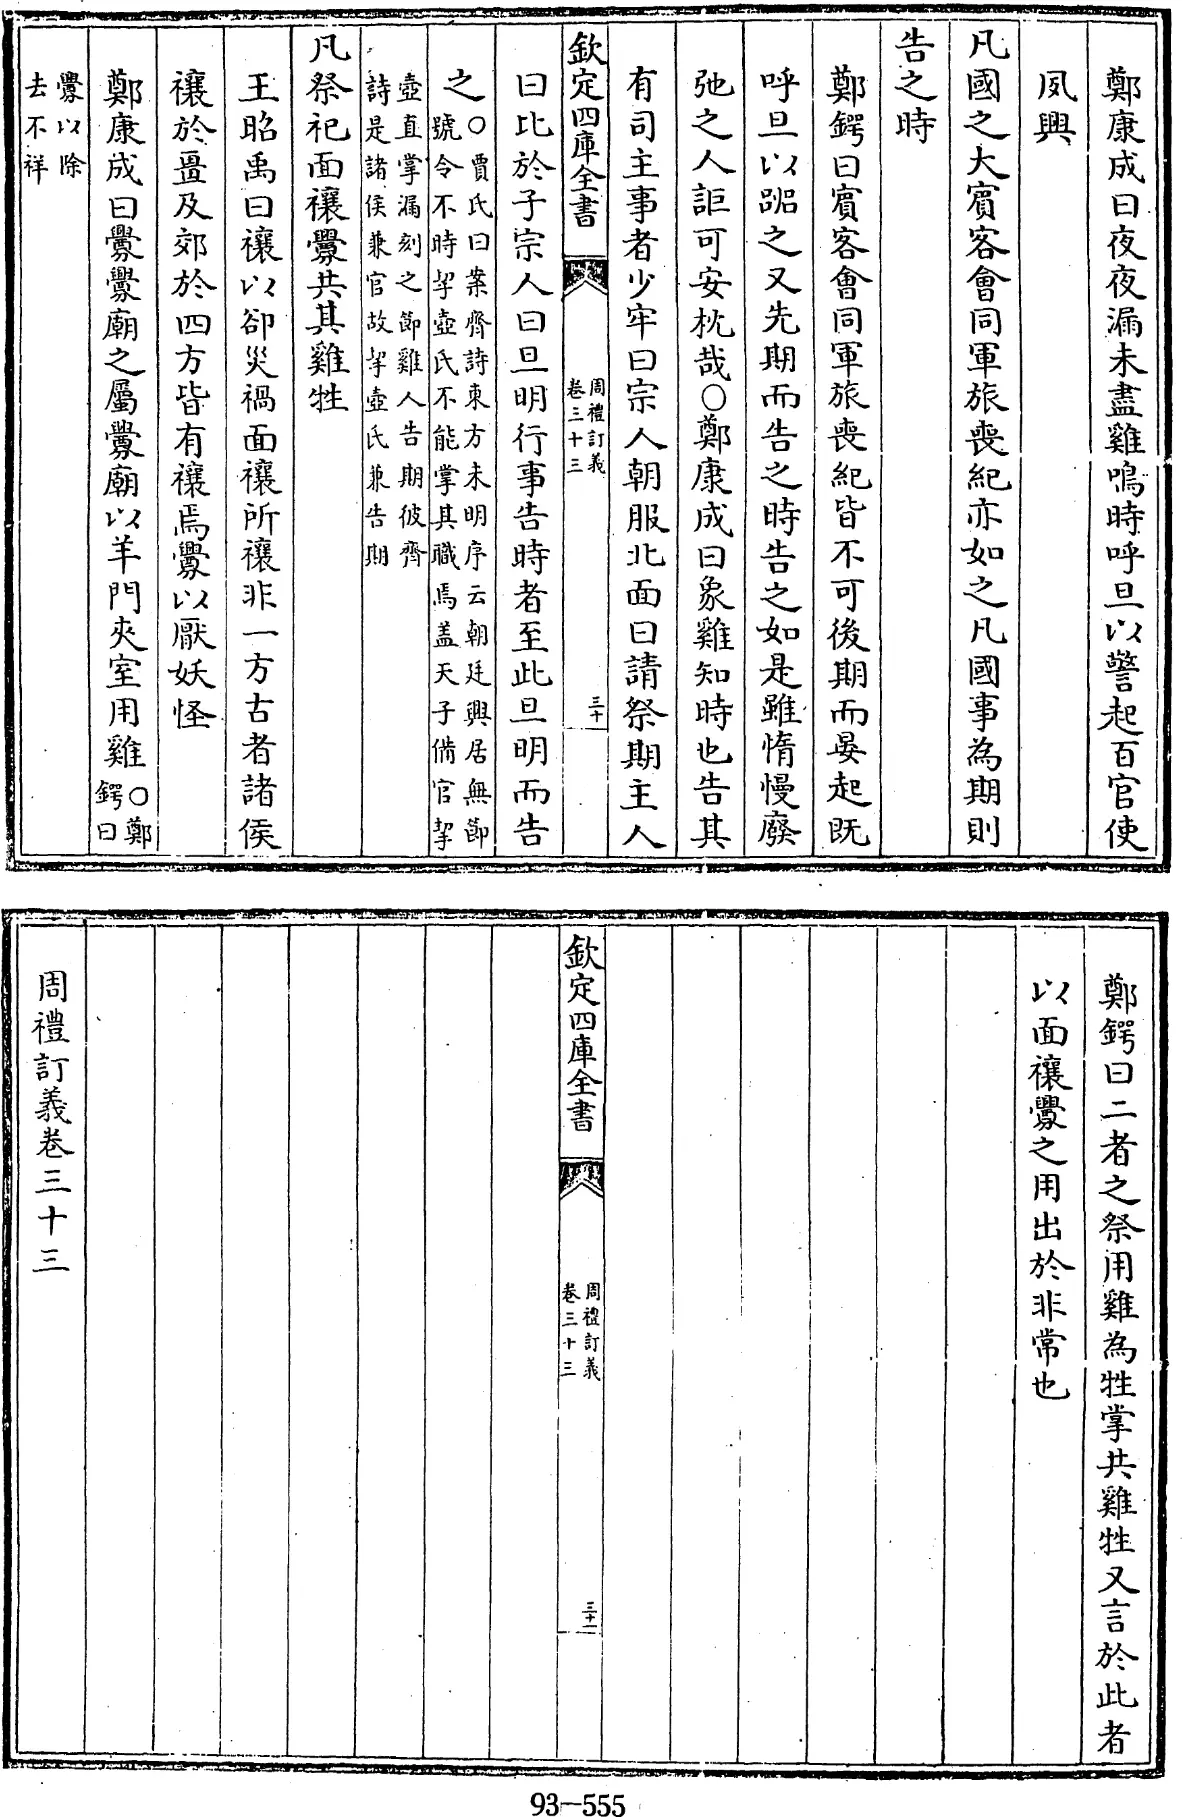 鄭康成曰夜夜漏未盡雞鳴時呼旦以警起百官使
夙興
凡國之大賓客會同軍旅喪紀亦如之凡國事為期則
告之時
鄭鍔曰賓客會同軍旅喪紀皆不可後期而晏起既
呼旦以詔之又先期而告之時告之如是雖惰慢廢
弛之人詎可安枕哉○鄭康成曰象雞知時也告其
有司主事者少牢曰宗人朝服北面曰請祭期主人
欽定四庫全書
周禮訂義
卷三十三
三十
曰比於子宗人曰旦明行事告時者至此旦明而告
之○賈氏曰案齊詩東方未明序云朝廷興居無節
號令不時挈壺氏不能掌其職焉蓋天子備官挈
壺直掌漏刻之節雞人告期彼齊
詩是諸侯兼官故挈壺氏兼告期
凡祭祀面禳釁共其雞牲
王昭禹曰禳以卻災禍面禳所禳非一方古者諸侯
禳於畺及郊於四方皆有禳焉釁以厭妖怪
鄭康成曰釁釁廟之屬釁廟以羊門夾室用雞○鄭
鍔曰
釁以除
去不祥
鄭鍔曰二者之祭用雞為牲掌共雞牲又言於此者
以面禳釁之用出於非常也
欽定四庫全書
周禮訂義
卷三十三
三十一
周禮訂義卷三十三
93-555